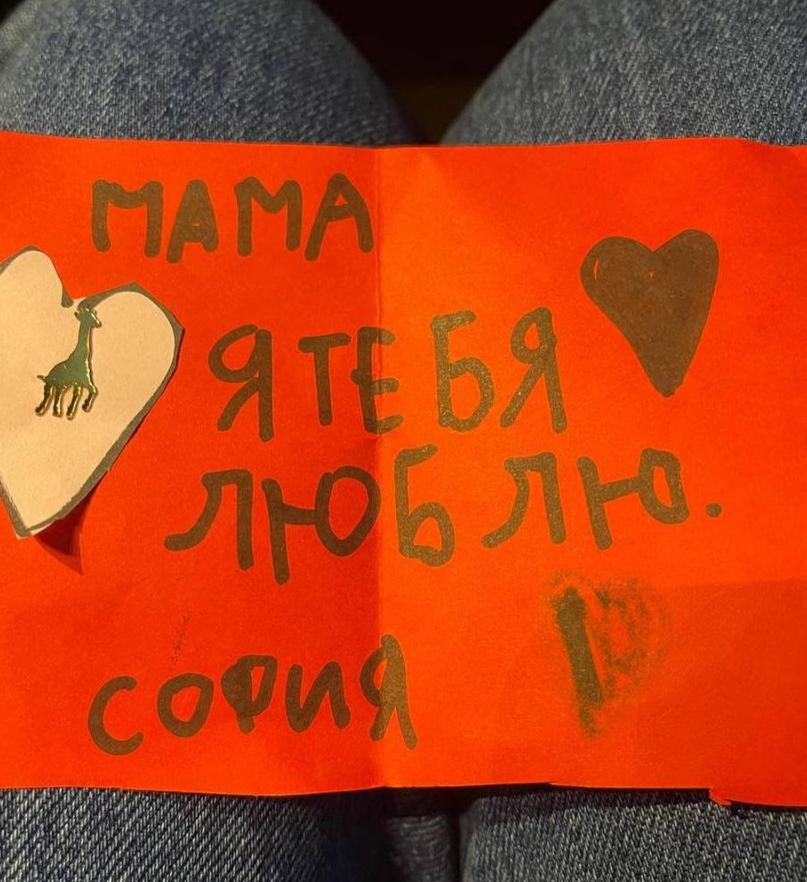 МАМА
Я ТЕБЯ
ЛЮБЛЮ.
СОФИЯ